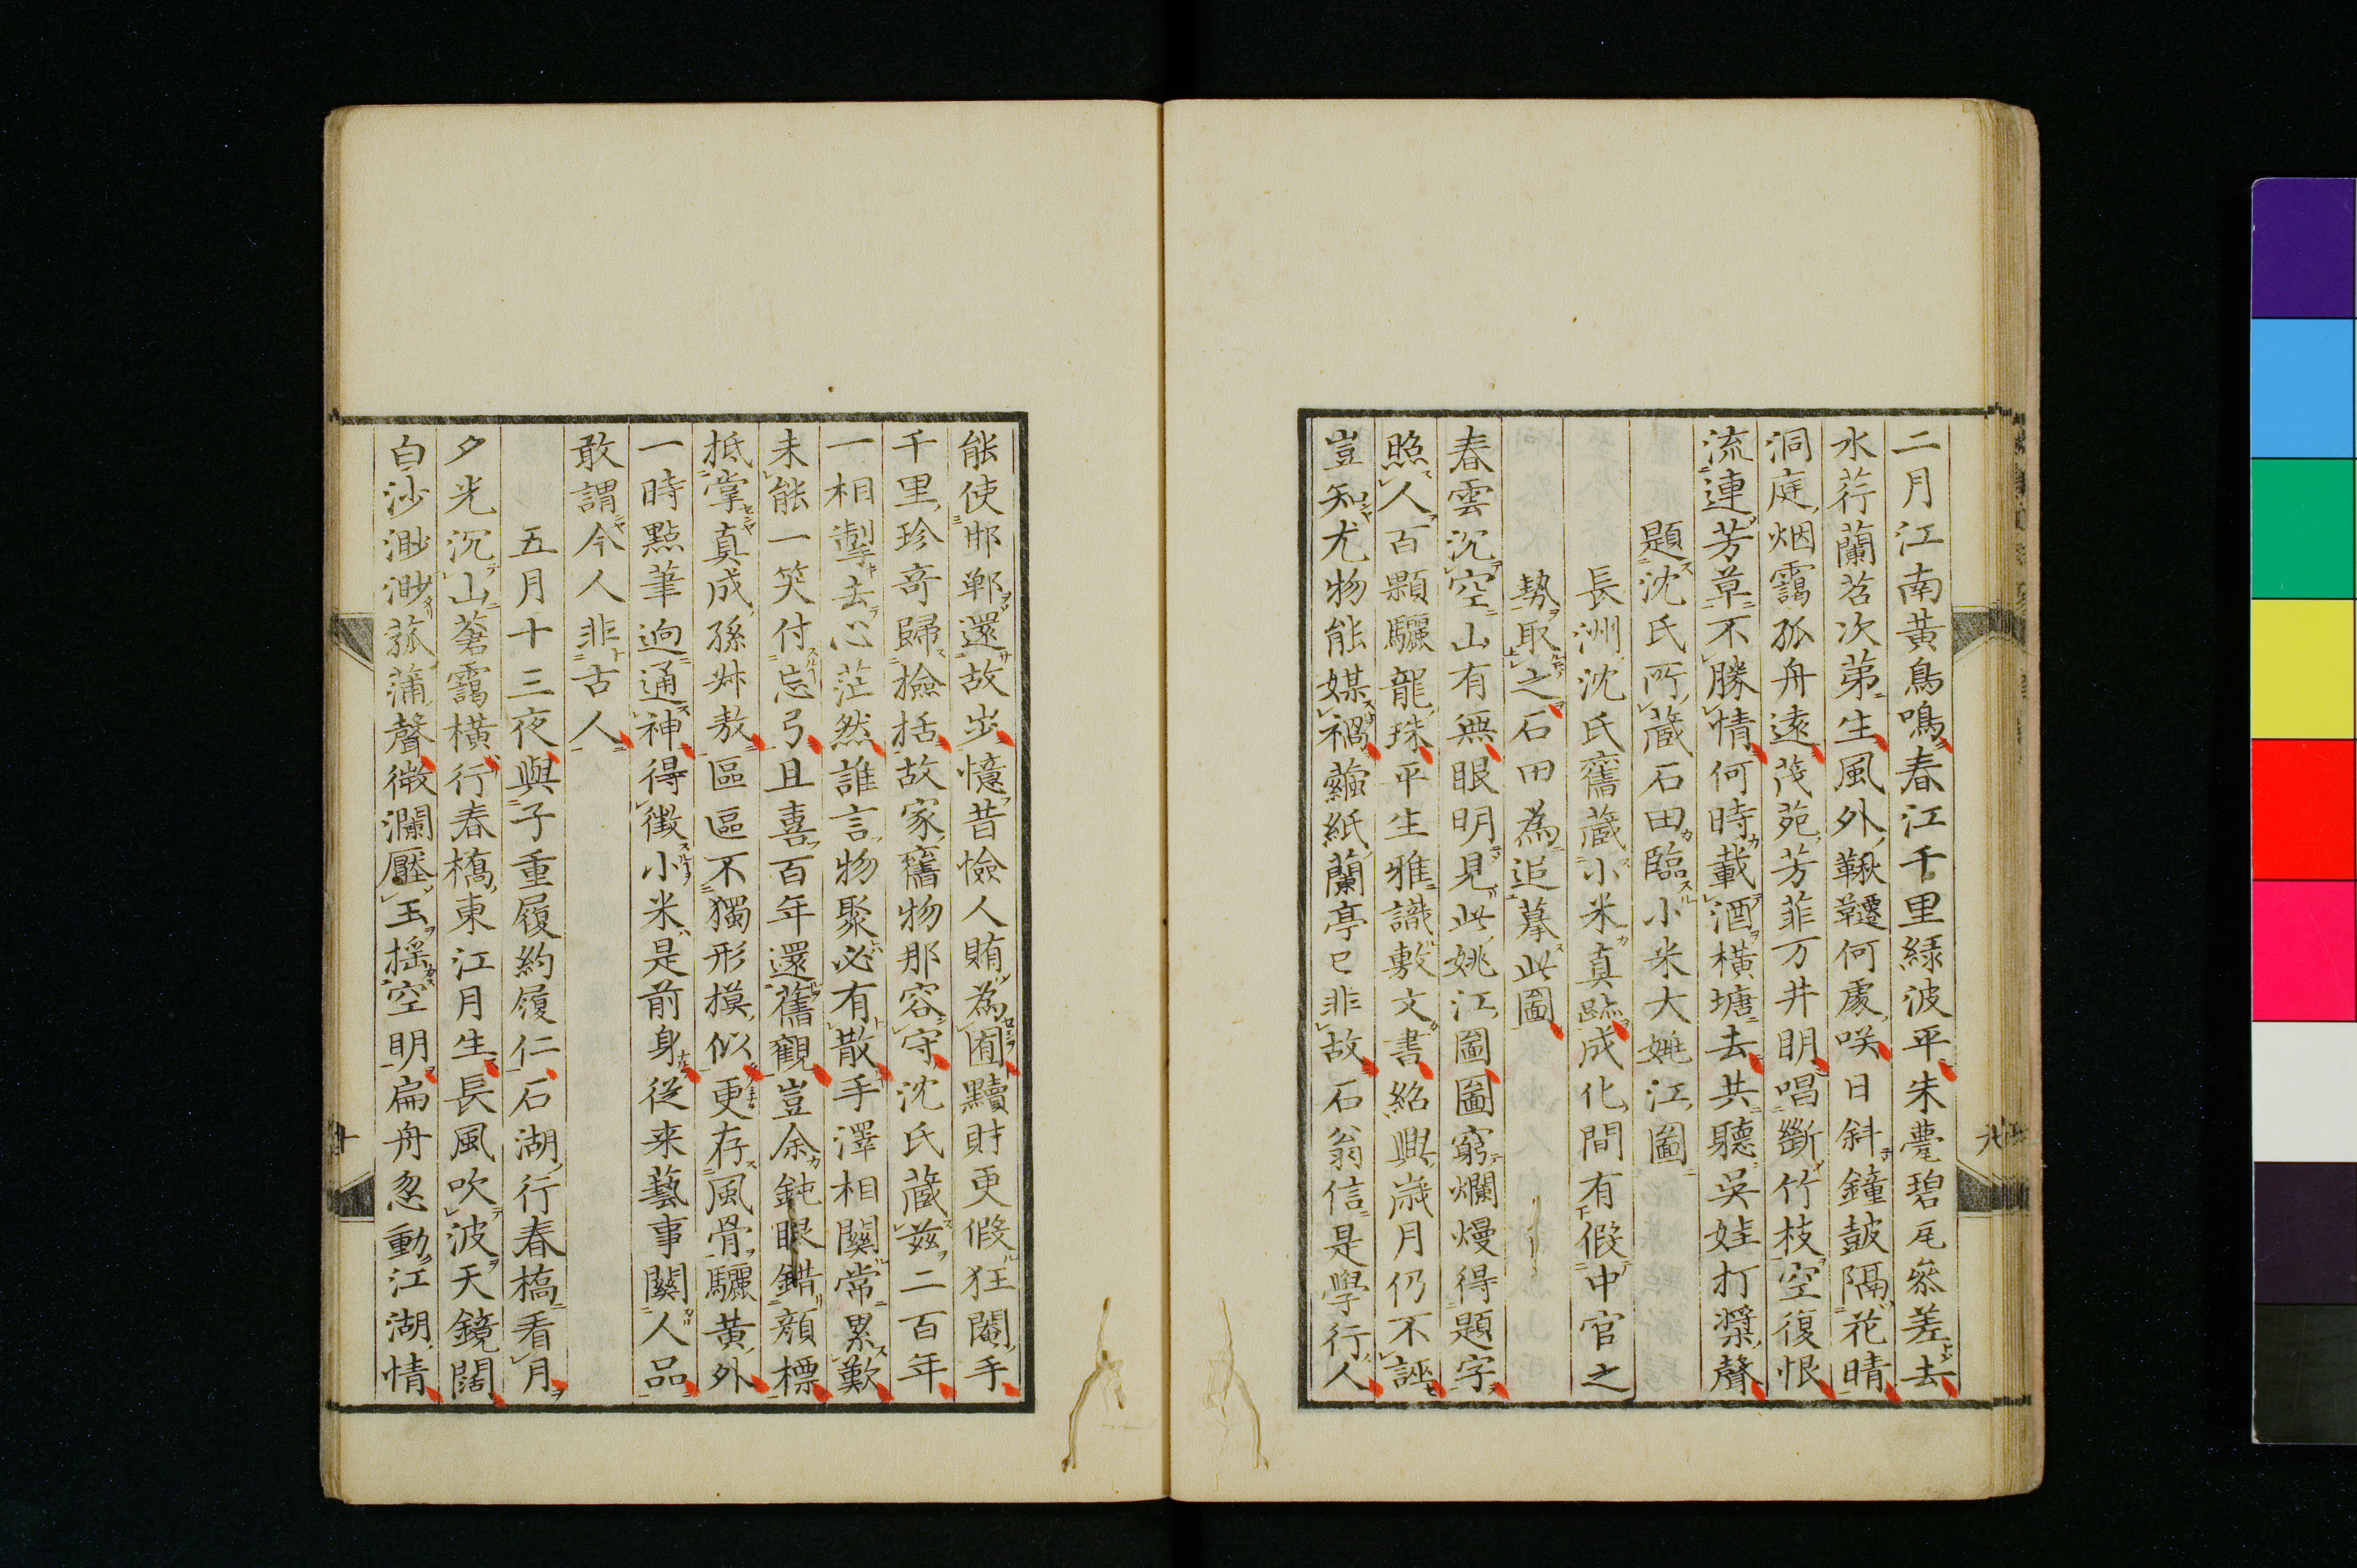 二月江南黃鳥鳴春江千里緑波平朱甍碧瓦參差去
水荇蘭苕次第生風外鞦韆何處咲日斜鐘皷隔花晴
洞庭烟靄孤舟遠茂苑芳菲万井明唱斷竹枝空復恨
流連芳草不勝情何時載酒橫塘去共聽吳娃打槳聲
題沈氏所藏石田臨小米大姚江圖
長洲沈氏舊藏小米真跡成化間有假中官之
勢取之石田為追摹此圖
春雲沉空山有無眼明見此姚江圖圖窮爛熳得題字
照人百顆驪龍珠平生雅識敷文書紹興歲月仍不誣
豈知尤物能媒禍繭紙蘭亭已非故石翁信是學行人
能使邯鄲還故步憶昔憸人賄為囿黷財更假狂閹手
千里珍奇歸撿括故家舊物那容守沈氏藏茲二百年
一相掣去心茫然誰言物聚必有散手澤相關常累歎
未能一笑付忘弓且喜百年還舊觀豈余鈍眼錯顏標
抵掌真成孫叔敖區區不獨形摸似更存風骨驪黃外
一時點筆逈通神得徵小米是前身從来藝事關人品
敢謂今人非古人
五月十三夜與子重履約履仁石湖行春橋看月
夕光沉山蒼靄橫行春橋東江月生長風吹波天鏡闊
白沙渺渺菰蒲聲微瀾壓玉揺空明扁舟忽動江湖情
九
十